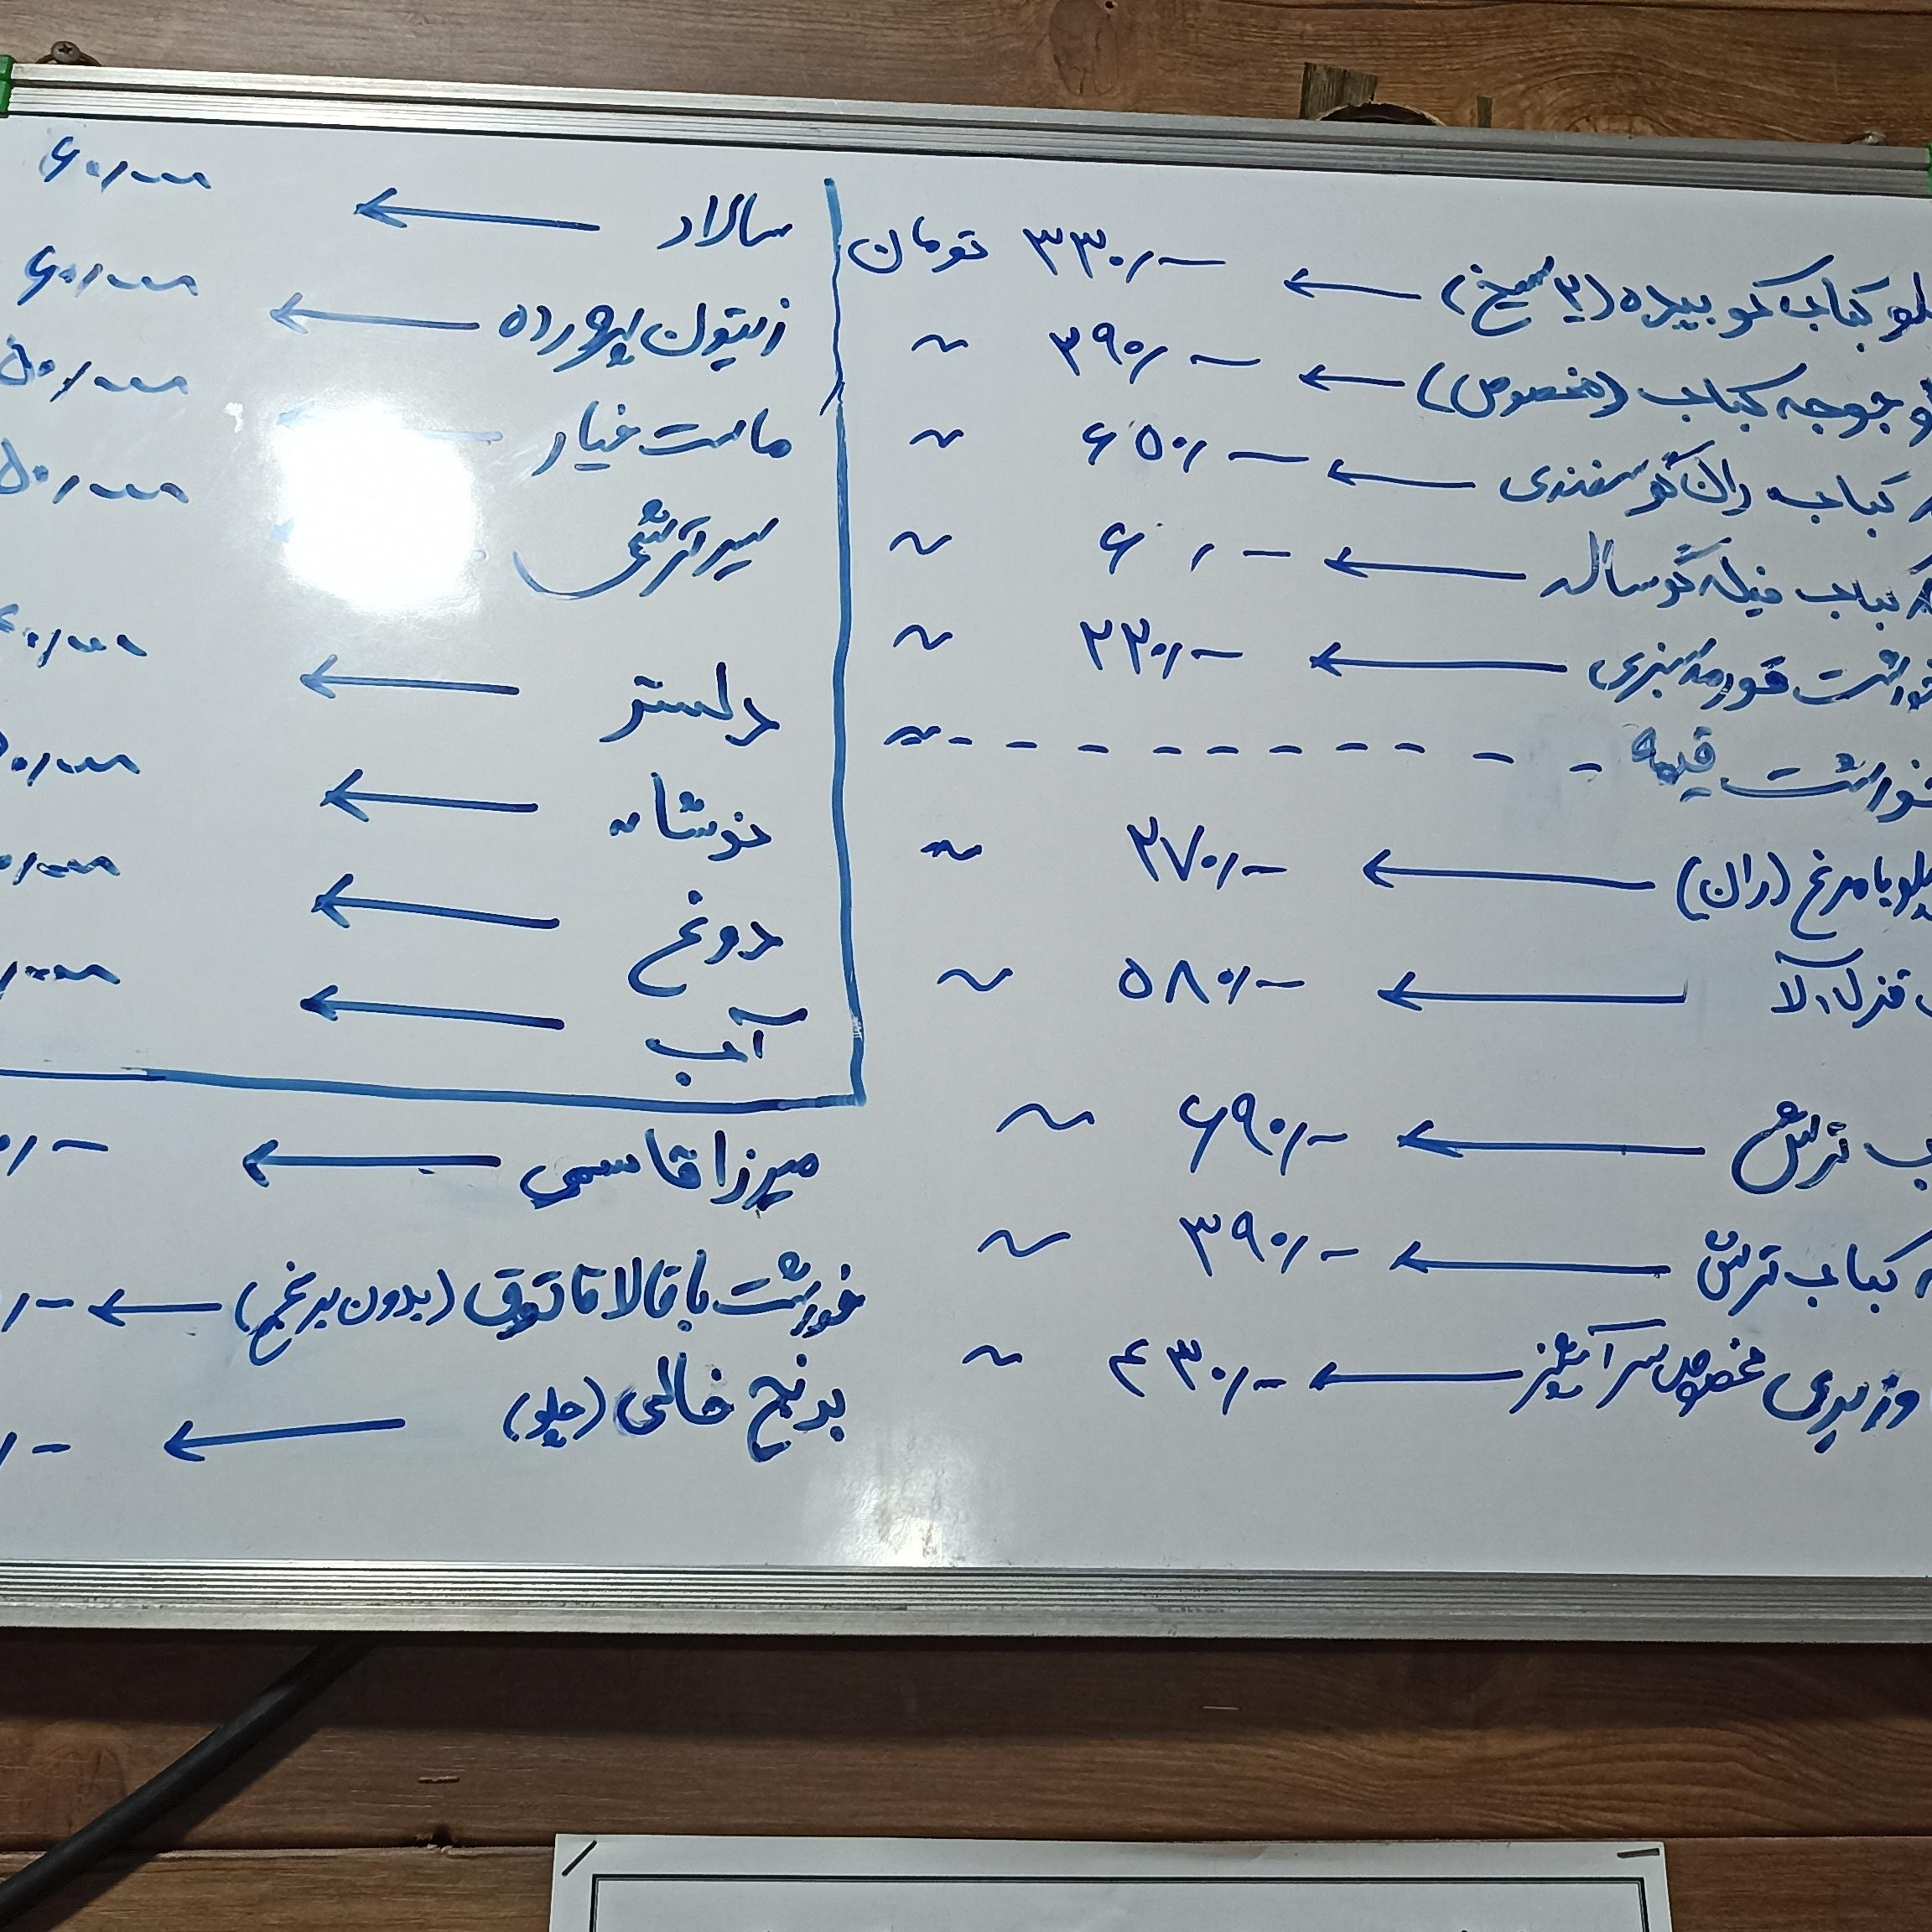 کباب کوبیده (۲ سیخ) ← ۳۳۰/- تومان
جوجه کباب (مخصوص) ← ۳۹۰/- ~
کباب ران گوسفندی ← ۶۵۰/- ~
کباب فیله گوساله ← ~
خورشت قورمه سبزی ← ۲۲۰/- ~
خورشت قیمه - - - - - - - - - ~
با مرغ (ران) ← ۲۷۰/- ~
قزل آلا ← ۵۸۰/- ~
ترش ← ۶۹۰/- ~
کباب ترش ← ۳۹۰/- ~
وزیری مخصوص سرآشپز ← ۴۳۰/- ~
سالاد ← ۶۰/۰۰۰
زیتون پرورده ← ۶۰/۰۰۰
ماست خیار ← ۵۰/۰۰۰
سیر ترشی ← ۵۰/۰۰۰
دلستر ←
نوشابه ←
دوغ ←
آب ←
میرزا قاسمی ←
خورشت باقالا قاتوق (بدون برنج) ←
برنج خالی (چلو) ←